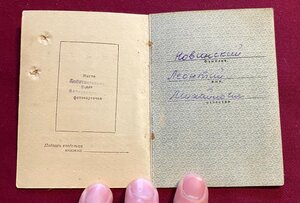 Место
для
фотокарточки
Подпись владельца
книжки
Новинский
фамилия
Леонтий
имя
Михайлович
отчество